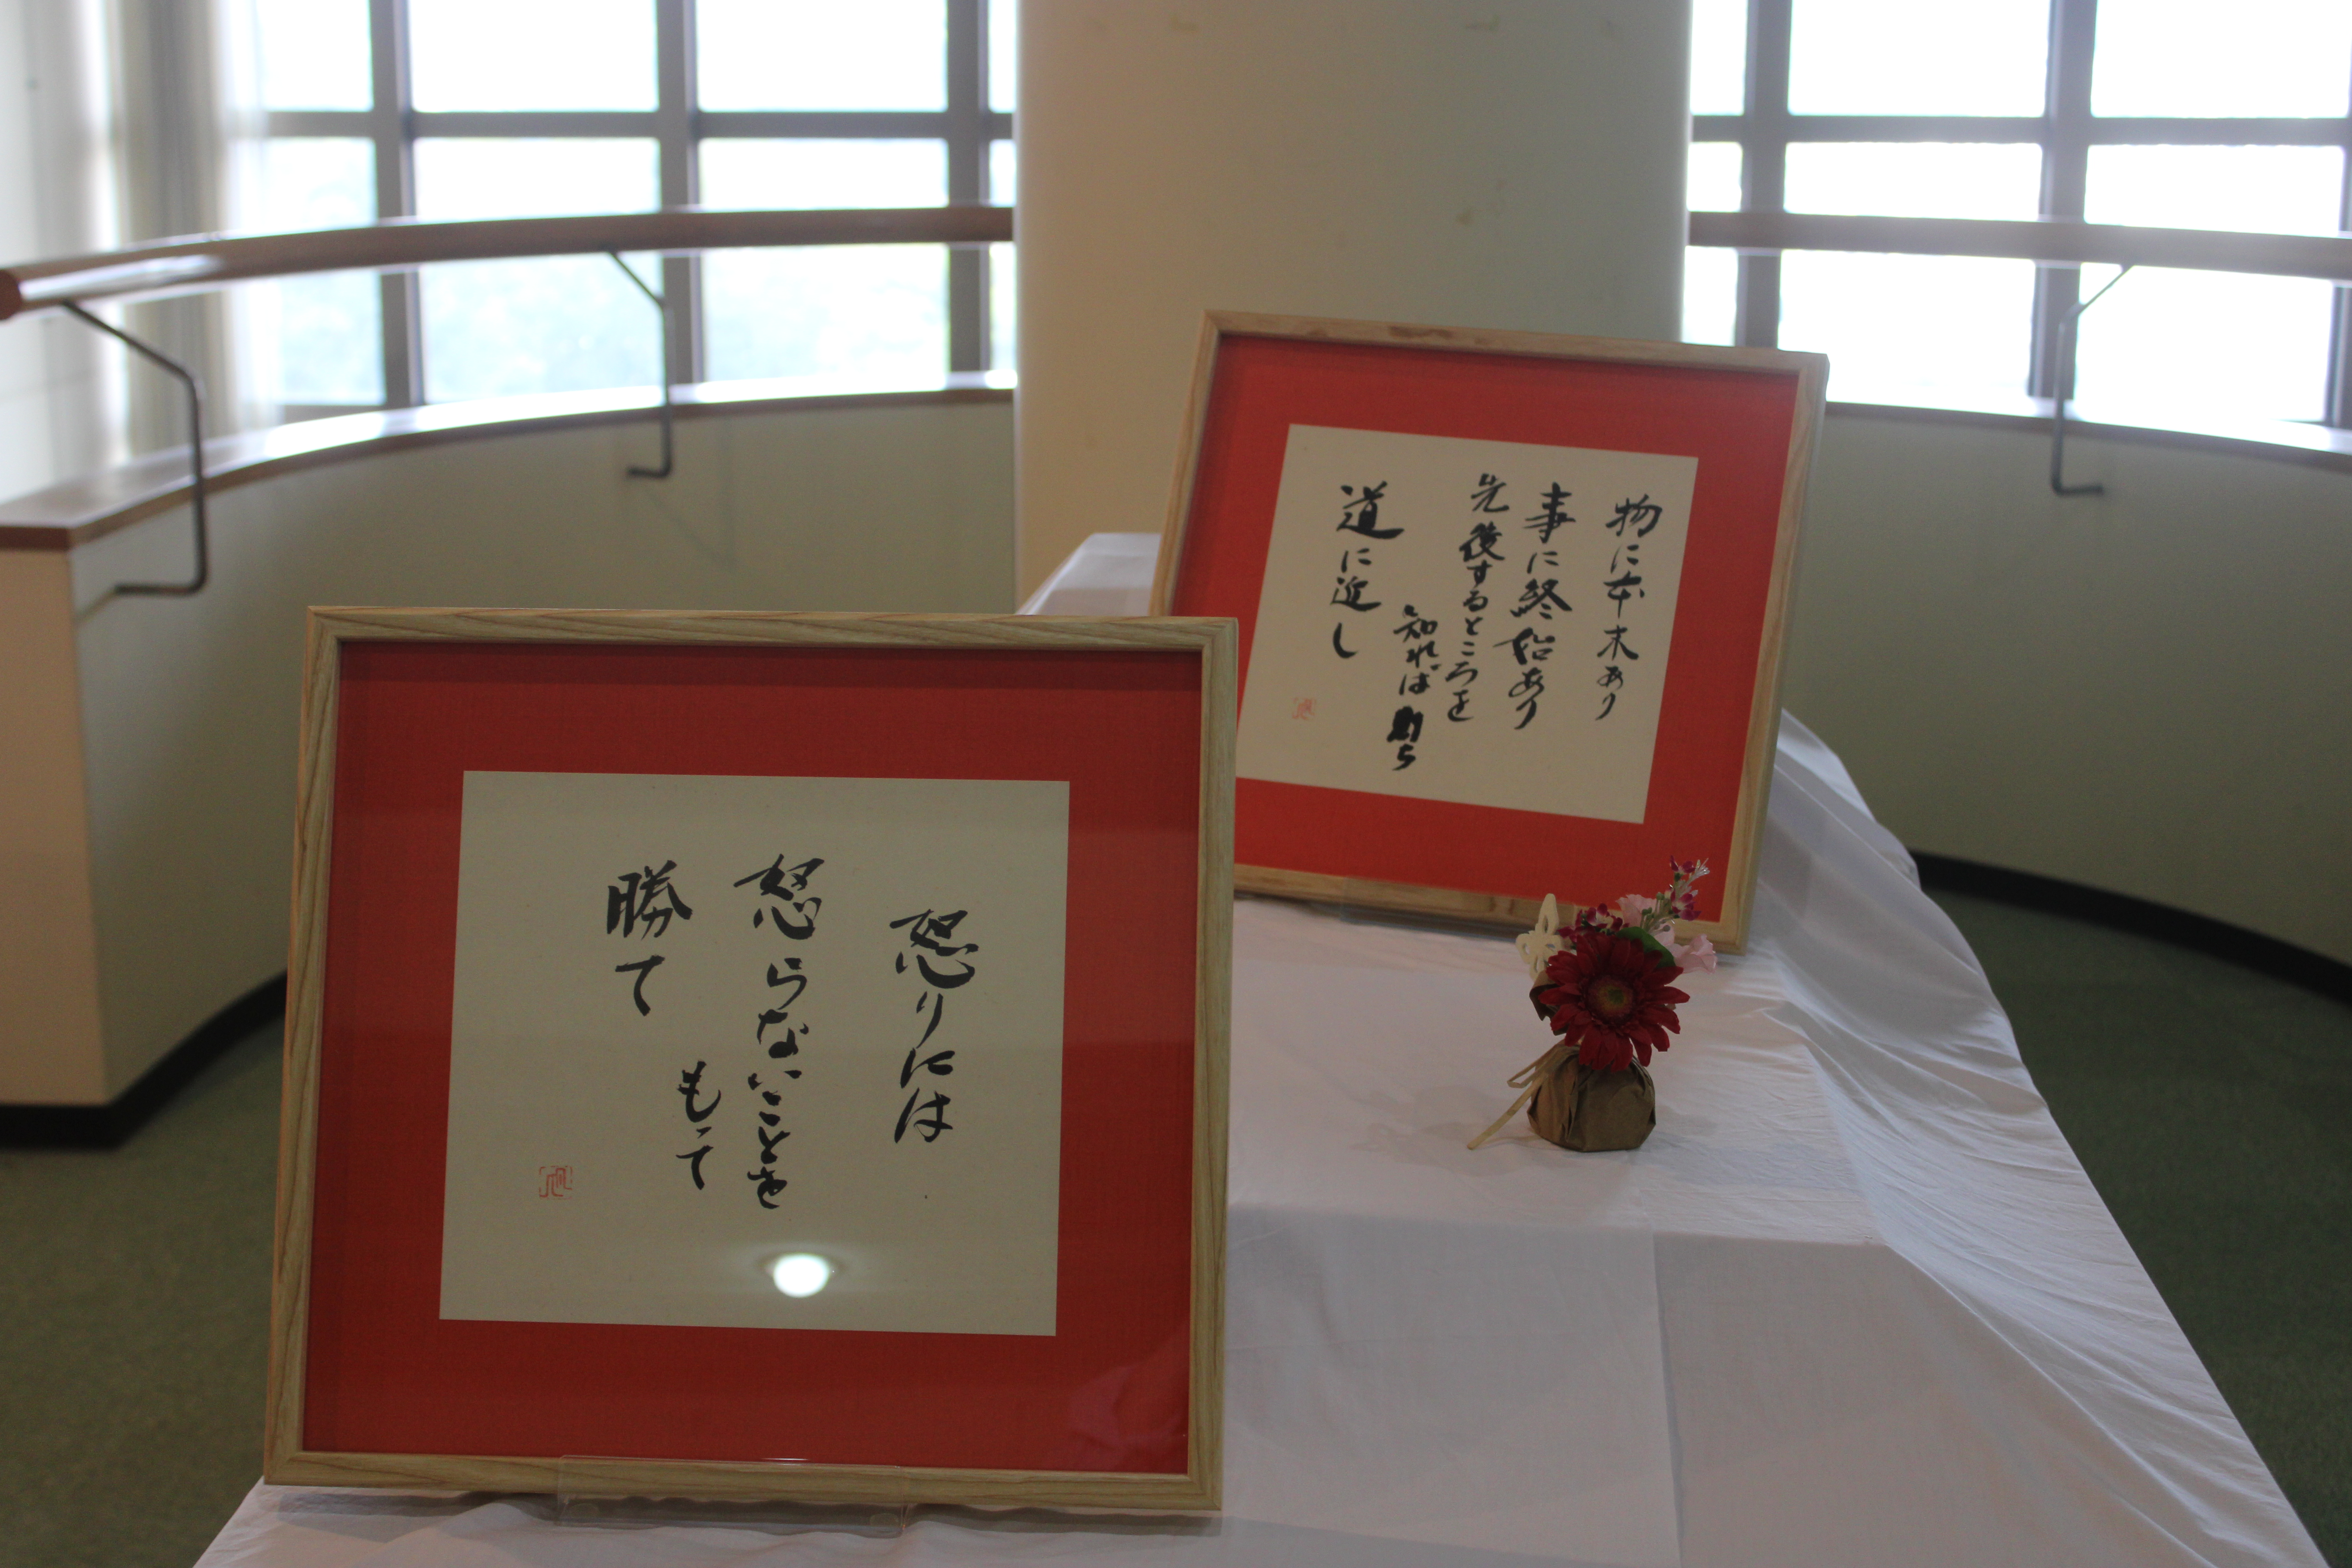 怒りには
怒らないことを
もって
勝て
物に本末あり
事に終始あり
先後するところを
知れば則ち
道に近し